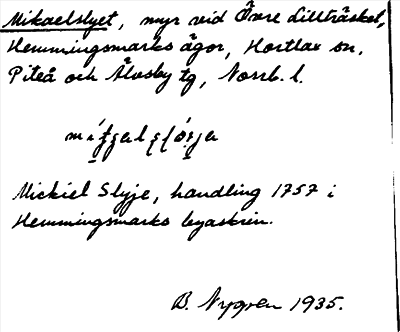 Mikaelslyet, myr vid Övre Lillträsket,
Hemmingsmarks ägor, Hortlax sn,
Piteå och Älvsby tg, Norrb. l.
Mickiel Slyje, handling 1757 i
Hemmingsmarks byaskrin.
B. Nygren 1935.